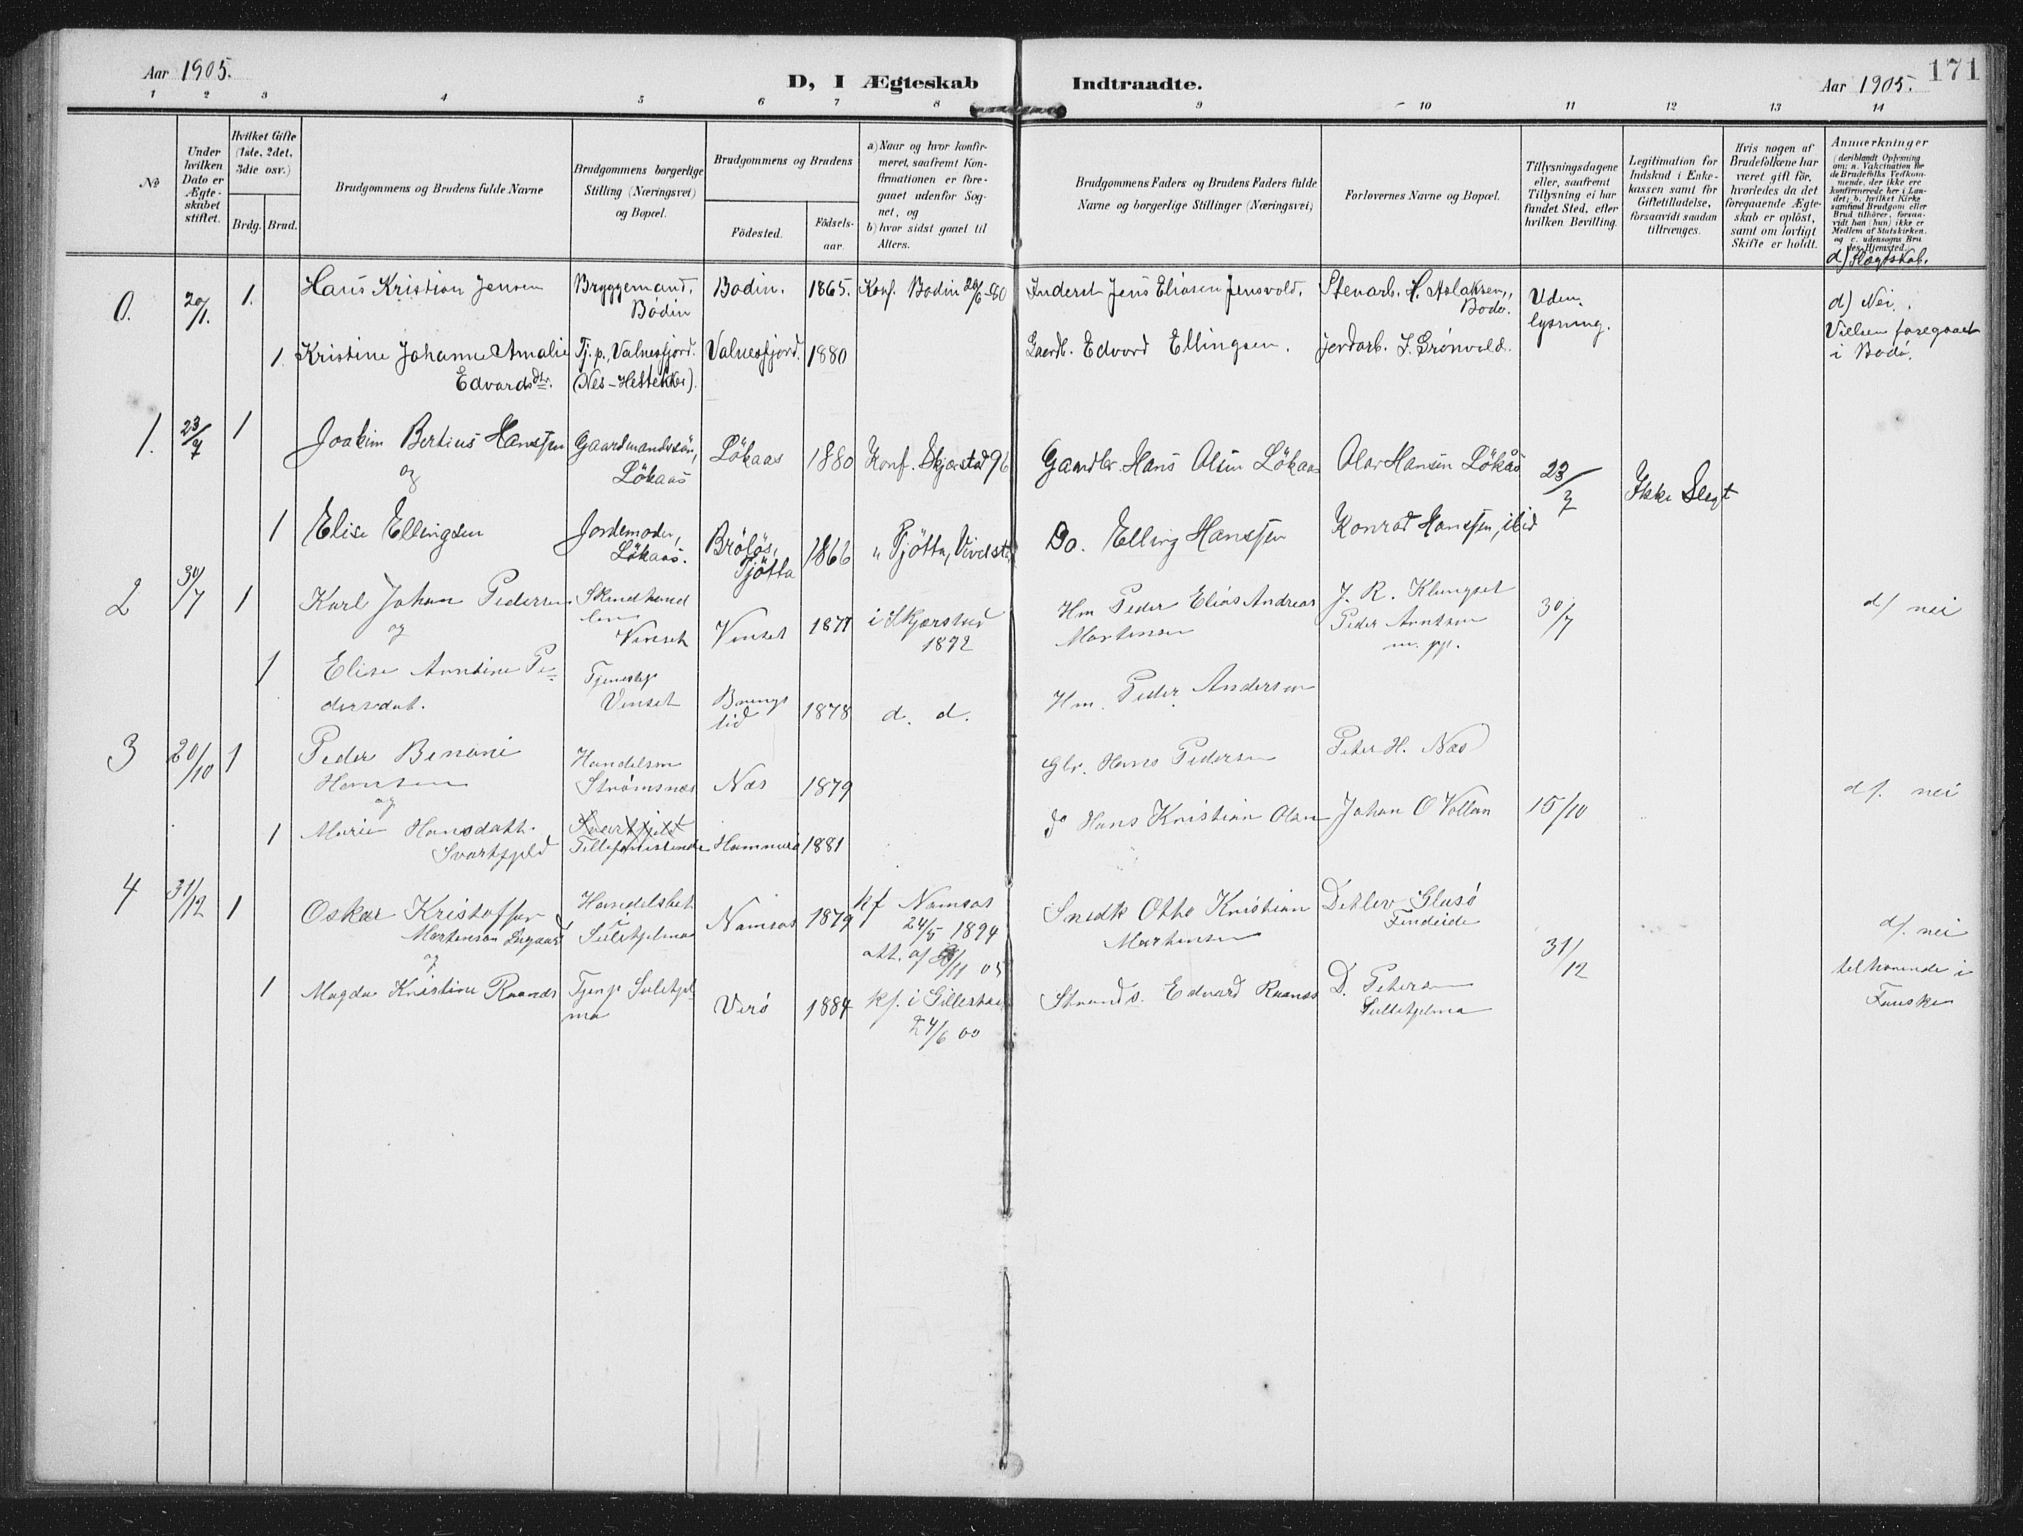 Aar 1905.
D, I Ægteskab Indtraadte.
Aar 1905.
171
1 2 3 4 5 6 7 8 9 10 11 12 13 14
№
Under hvilken Dato er Ægteskabet stiftet.
Hvilket Gifte (1ste, 2det, 3die osv.)
Brdg. Brud.
Brudgommens og Brudens fulde Navne
Brudgommens borgerlige Stilling (Næringsvei) og Bopæl.
Brudgommens og Brudens
Födested.
Födselsaar.
a) Naar og hvor konfirmeret, saafremt Konfirmationen er foregaaet udenfor Sognet, og
b) hvor sidst gaaet til Alters.
Brudgommens Faders og Brudens Faders fulde Navne og borgerlige Stillinger (Næringsvei)
Forlovernes Navne og Bopæl.
Tillysningsdagene eller, saafremt Tillysning ei har fundet Sted, efter hvilken Bevilling.
Legitimation for Indskud i Enkekassen samt for Giftetilladelse, forsaavidt saadan tiltrænges.
Hvis nogen af Brudefolkene har været gift för, hvorledes da det foregaaende Ægteskab er oplöst, samt om lovligt Skifte er holdt.
Anmærkninger
(deriblandt Oplysning om: a. Vakcination for de Brudefolks Vedkommende, der ikke ere konfirmerede her i Landet; b. hvilket Kirkesamfund Brudgom eller Brud tilhörer, forsaavidt han (hun) ikke er Medlem af Statskirken, og c. udensogns Brudes Hjemsted.)
d) Slægtskab.
0. 20/1. 1. Hans Kristian Jensen Bryggemand, Bodin. 1865. Konf. Bodin 20/6-80 Inderst Jens Eliasen Jensvold. Stenarb. H. Aslaksen, Uden d) Nei.
Bodin Bodø. lysning. Vielsen foregaaet
1. Kristine Johanne Amalie Tj. p., Valnesfjord. Valnesfjord. 1880 Gaardb. Edvard Ellingsen. Jordarb. L. Grønvold. i Bodø.
Edvardsdtr. (Nes-Hestekker).
1. 23/7 1 Joakim Bertius Hanssen Gaardmandssön, Lökaas 1880 Konf. Skjerstad 96 Gaardbr. Hans Olsen Lökaas Olav Hansen Lökås 23/7 Ikke Slegt
og Lökaas
1 Elise Ellingsen Jordemoder, Brölös, 1866 " Tjötta, Do. Elling Hanssen Konrad Hanssen, ibid
Lökaas. Tjötta
2 30/7 1 Karl Johan Pedersen Vinset Vinset 1877 i Skjerstad Hm Peder Elias Andreas J. R. Klungset 30/7 d/ nei
og 1892 Mortensen Peder Arntsen
m. pp.
1 Elise Arntine Pe-
dersdat. Vinset 1878 d. d. Hm. Peder Andersen
3 20/10 1 Peder Benoni Handelsm Næs 1879 Gbr. Hans Pedersen Peter H. Næs d/. nei
Hansen Strømsnæs
og
1 Marie Hansdatt. Svartfjeld Hammerö 1881 do Hans Kristian Olsen Johan O Vollan 15/10
Svartfjeld
4 31/12 1 Oskar Kristoffer Handelsbet Namsos 1879 kf Namsos Snedk Otto Kristian Detlev Glasö d/. nei
Mortensen i Sulitjelma 24/5 1894 Mortensen Findeide
og att. af /11 05 31/12 tilhørende i
1 Magda Kristine Raanes Tjenp Sulitjel- Verö 1884 kf. i Gildeskaal Strands. Edvard Raanes D. Petersen Fauske
ma 24/6 00 Sulitjelma